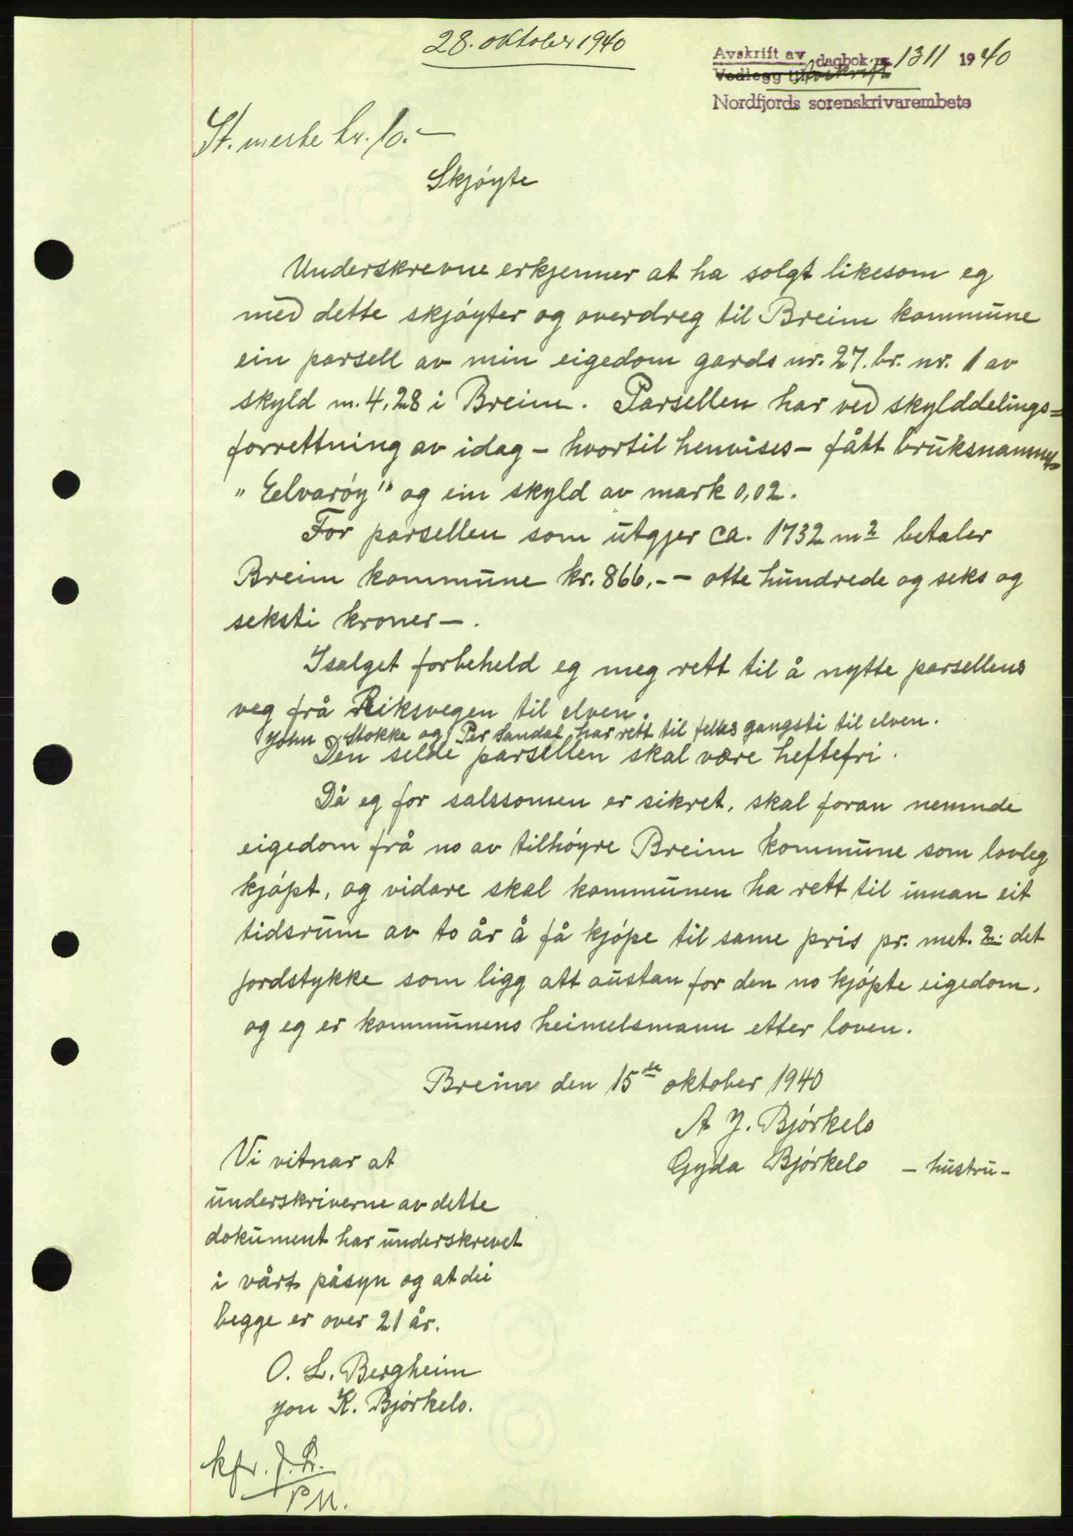 28. oktober 1940
Avskrift av dagbok nr. 1311 1940
Vedlegg til
Nordfjords sorenskrivarembete
St. merke kr. 10.-
Skjøyte
Underskrevne erkjenner at ha solgt likesom eg
med dette skjøyter og overdreg til Breim kommune
ein parsell av min eigedom gards nr. 27. br. nr. 1 av
skyld m. 4,28 i Breim. Parsellen har ved skylddelings=
forrettning av idag - hvortil henvises - fått bruksnamnet
"Eelvarøy" og ein skyld av mark 0,02.
For parsellen som utgjer ca. 1732 m2 betaler
Breim kommune kr. 866,-- otte hundrede og seks og
seksti kroner -.
I salget forbeheld eg meg rett til å nytte parsellens
veg frå Riksvegen til elven.
John Stokke og Per Sandal har rett til felles gangsti til elven.
Den selde parsellen skal være heftefri.
Då eg for salssomen er sikret, skal foran nemnde
eigedom frå no av tilhøyre Breim kommune som lovleg
kjøpt, og vidare skal kommunen ha rett til innan eit
tidsrum av to år å få kjøpe til same pris pr. met. 2. det
jordstykke som ligg att austan for den no kjøpte eigedom,
og eg er kommunens heimelsmann etter loven.
Breim den 15de oktober 1940
A J. Bjørkelo
Gyda Bjørkelo - hustru -
Vi vitnar at
underskriverne av dette
dokument har underskrevet
i vårt påsyn og at dei
begge er over 21 år.
O. L. Bergheim
Jon K. Bjørkelo.
kfr. J. L.
P M.